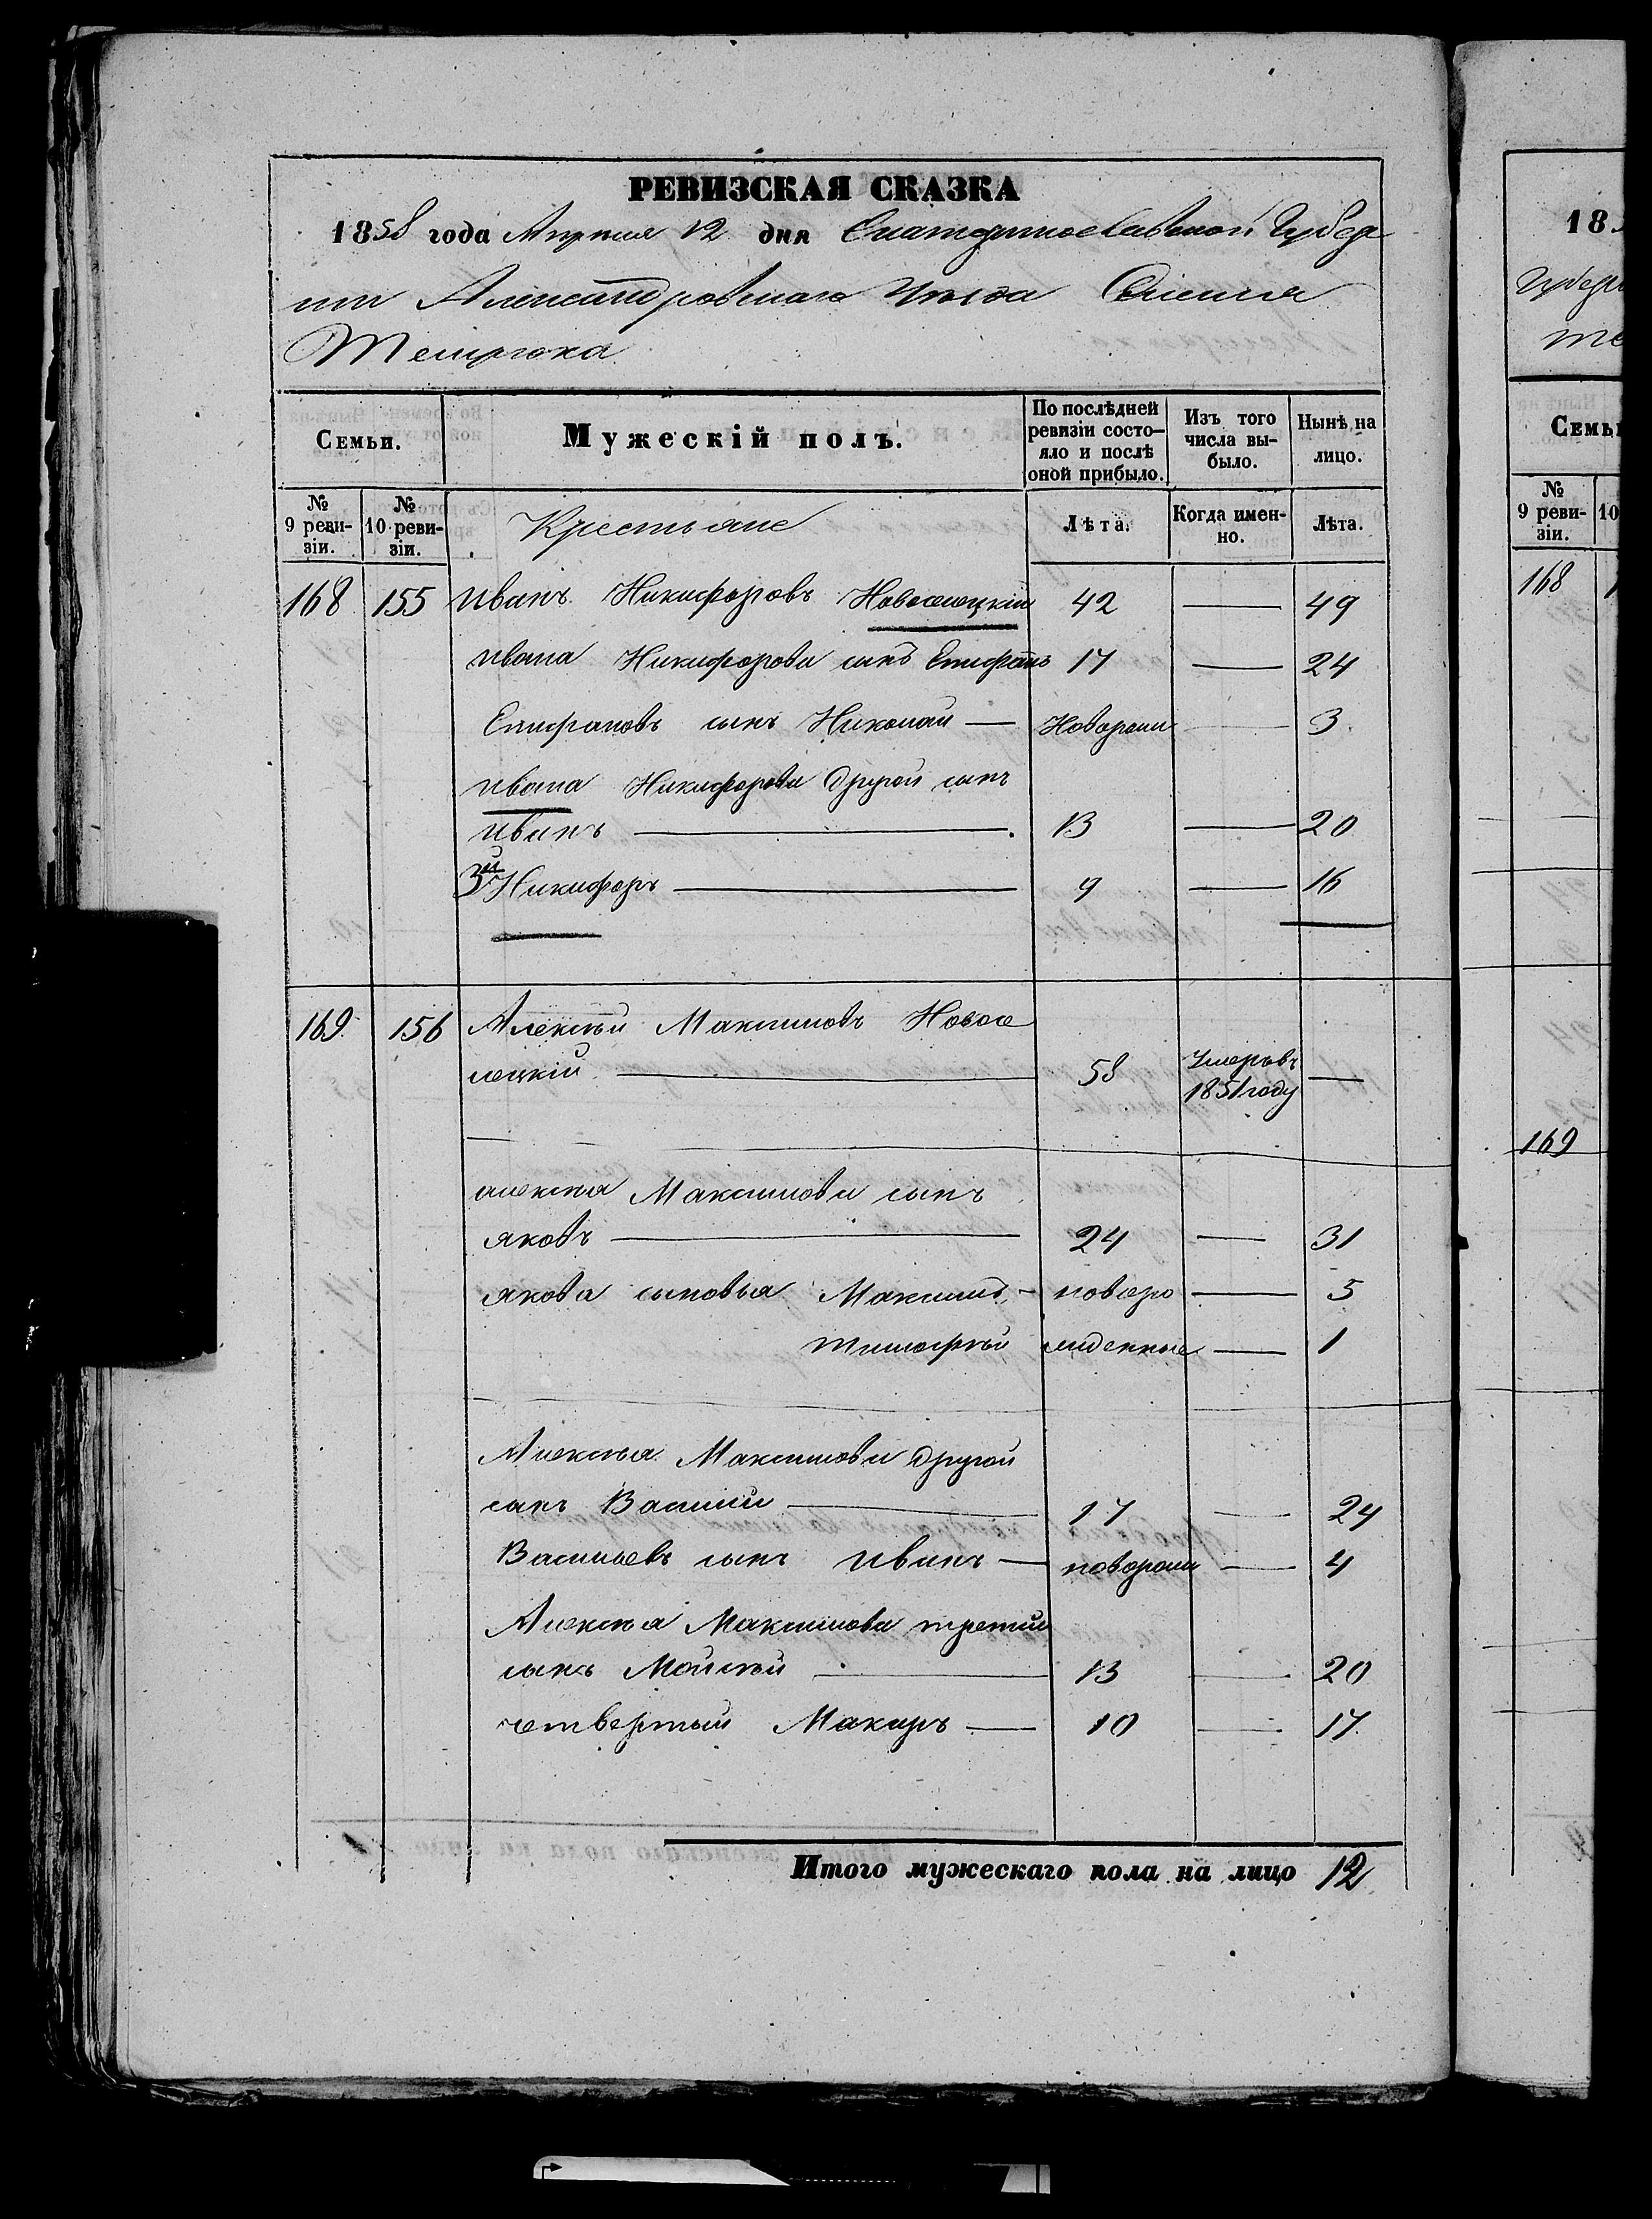 РЕВИЗСКАЯ СКАЗКА
1858 года Апреля 12 дня Екатеринославской Губер
нии Александровскаго Уѣзда Селения
Темрюка
Семьи.
Мужескій полъ.
По послѣдней ревизіи состо-яло и послѣ оной прибыло.
Изъ того числа вы-было.
Нынѣ на лицо.
№ 9 реви-зіи.
№ 10 реви-зіи.
Крестьяне
Лѣта.
Когда имен-но.
Лѣта.
168 155 Иванъ Никифоровъ Новоселецкій 42 — 49
Ивана Никифорова сынъ Епифанъ 17 — 24
Епифановъ сынъ Николай — Новорожд — 3
Ивана Никифорова другой сынъ
Иванъ — 13 — 20
3й Никифоръ — 9 — 16
169 156 Алексѣй Максимовъ Новосе
лецкій — 58 Умеръ въ 1851 году —
Алексѣя Максимова сынъ
Яковъ — 24 — 31
Якова сыновья Максимъ — новоро — 5
Тимофѣй жденные — 1
Алексѣя Максимова другой
сынъ Василий — 17 — 24
Васильевъ сынъ Иванъ — новорожд — 4
Алексѣя Максимова третий
сынъ Мойсѣй — 13 — 20
четвертый Макаръ — 10 — 17
Итого мужескаго пола на лицо 12
18
Губерн
Те
Семьи
№ 9 реви-зіи.
10
168 1
169